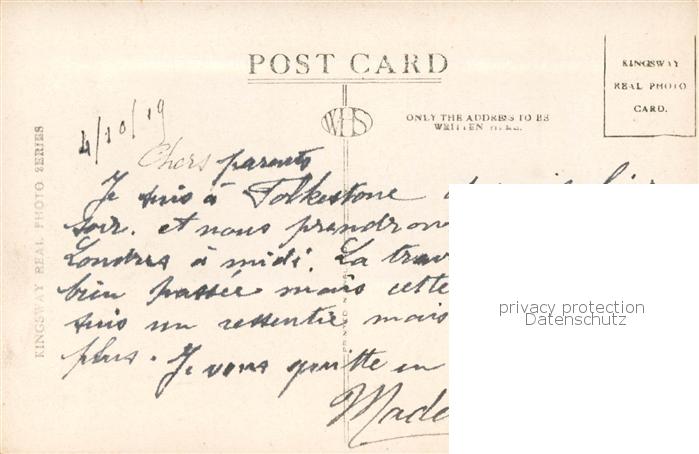 POST CARD
KINGSWAY
REAL PHOTO
CARD.
WHS
ONLY THE ADDRESS TO BE
WRITTEN HERE.
KINGSWAY REAL PHOTO SERIES
4/10/19
Chers parents
Je suis à Folkestone depuis hier
soir. et nous prendrons
Londres à midi. La trav
bien passée mais cette
suis un ressentie mais
plus. Je vous quitte en
Made
privacy protection
Datenschutz